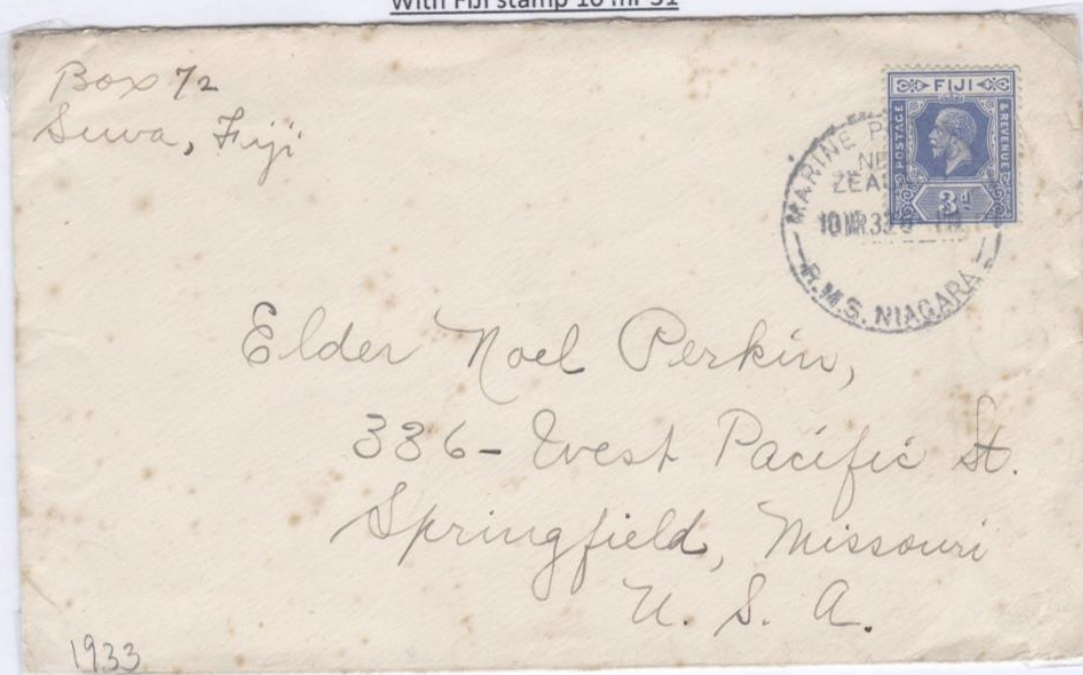 With Fiji stamp 10 mr 31
Box 72
Suva, Fiji
FIJI
POSTAGE
& REVENUE
3d
MARINE P
NE
ZEAL
10 MR.33
R.M.S. NIAGARA
Elder Noel Perkin,
336- West Pacific St.
Springfield, Missouri
U. S. A.
1933